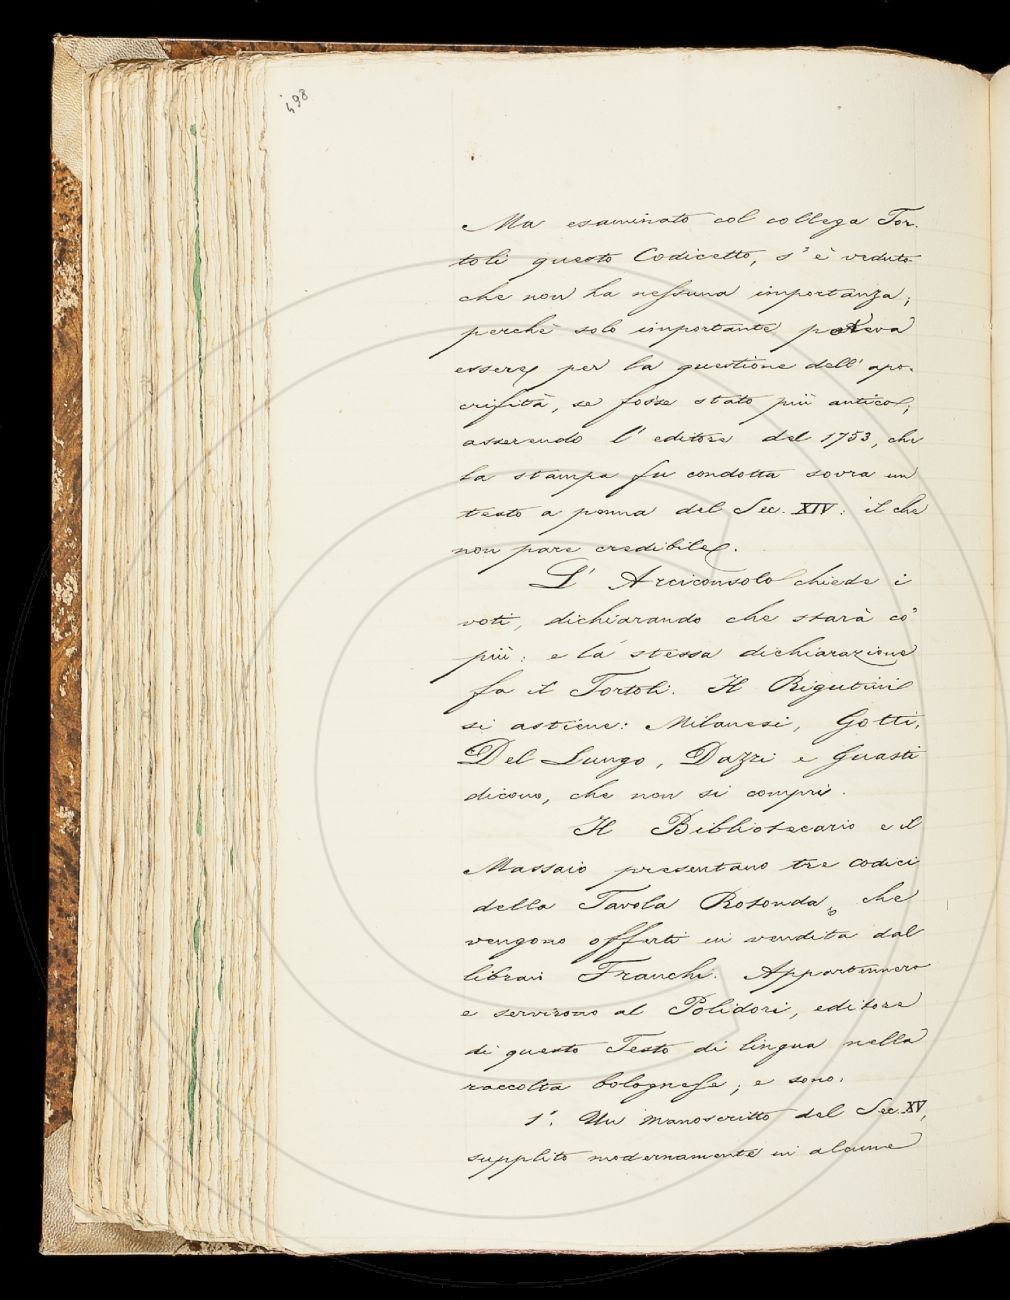 498
Ma esaminato col collega Tor-
toli questo Codicetto, s'è veduto
che non ha nessuna importanza;
perchè solo importante poteva
essere per la questione dell'apo-
crifità, se fosse stato più antico;
asserendo l'editore del 1753, che
la stampa fu condotta sovra un
testo a penna del Sec. XIV: il che
non pare credibile.
L'Arciconsolo chiede i
voti, dichiarando che starà co'
più: e la stessa dichiarazione
fa il Tortoli. Il Rigutini
si astiene: Milanesi, Gotti,
Del Lungo, Dazzi e Guasti
dicono, che non si compri.
Il Bibliotecario e il
Massaio presentano tre codici
della Tavola Rotonda, che
vengono offerti in vendita dal
libraio Franchi. Appartennero
e servirono al Polidori, editore
di questo Testo di lingua nella
raccolta bolognese; e sono:
1º. Un manoscritto del Sec. XV,
supplito modernamente in alcune